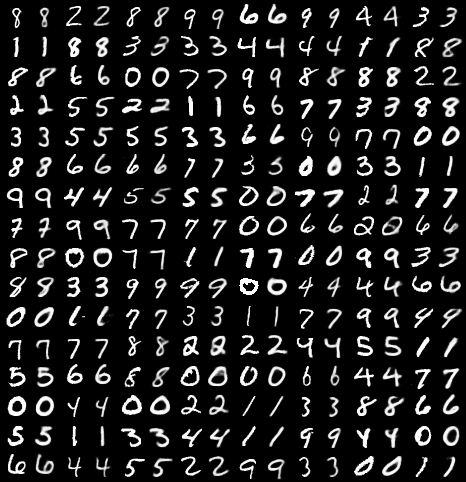 8 8 2 2 8 8 9 9 6 6 9 9 4 4 3 3
1 1 8 8 3 3 3 3 4 4 4 4 1 1 8 8
8 8 6 6 0 0 7 7 9 9 8 8 8 8 2 2
2 2 5 5 2 2 1 1 6 6 7 7 3 3 8 8
3 3 5 5 5 5 3 3 6 6 9 9 7 7 0 0
8 8 6 6 6 6 7 7 3 3 0 0 3 3 1 1
9 9 4 4 5 5 5 5 0 0 7 7 2 2 7 7
7 7 9 9 7 7 7 7 0 0 6 6 2 2 6 6
8 8 0 0 7 7 1 1 7 7 0 0 9 9 3 3
8 8 3 3 9 9 9 9 0 0 4 4 4 4 6 6
0 0 7 7 3 3 1 1 7 7 9 9 9 9
7 7 7 7 8 8 2 2 2 2 4 4 5 5 1 1
5 5 6 6 8 8 0 0 0 0 6 6 4 4 7 7
0 0 4 4 0 0 2 2 1 1 3 3 8 8 6 6
5 5 1 1 3 3 4 4 1 1 9 9 4 4 0 0
6 6 4 4 5 5 2 2 9 9 3 3 0 0 1 1